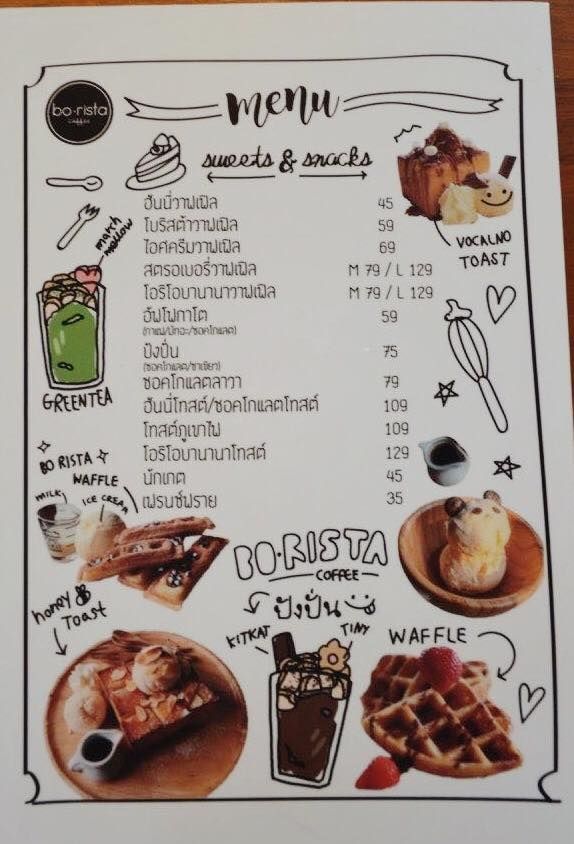 bo·rista
COFFEE
menu
sweets & snacks
ฮันนี่วาฟเฟิล 45
โบริสต้าวาฟเฟิล 59
ไอศครีมวาฟเฟิล 69
สตรอเบอรี่วาฟเฟิล M 79 / L 129
โอริโอบานานาวาฟเฟิล M 79 / L 129
อัฟโฟกาโต 59
(กาแฟ/มัทฉะ/ชอคโกแลต)
ปังปั่น 75
(ชอคโกแลต/ชาเขียว)
ชอคโกแลตลาวา 79
ฮันนี่โทสต์/ชอคโกแลตโทสต์ 109
โทสต์ภูเขาไฟ 109
โอริโอบานานาโทสต์ 129
นักเกต 45
เฟรนช์ฟราย 35
VOCALNO
TOAST
march
mallow
GREENTEA
BO RISTA
WAFFLE
MILK
ICE CREAM
honey
Toast
BO·RISTA
COFFEE
ปังปั่น
KITKAT
TINY
WAFFLE